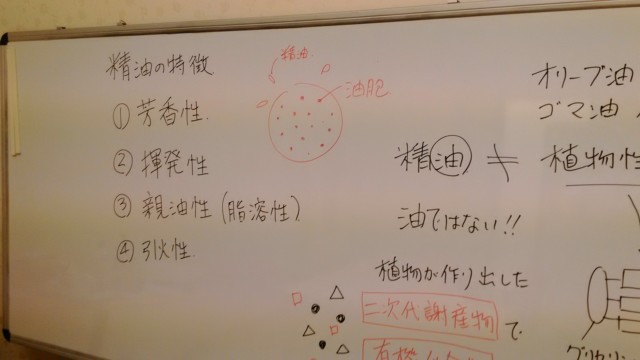 精油の特徴
①芳香性.
②揮発性
③親油性(脂溶性)
④引火性.
精油.
油胞
オリーブ油
ゴマ油
精油 ≠ 植物性
油ではない!!
植物が作り出した
二次代謝産物で
有機
グリセリン